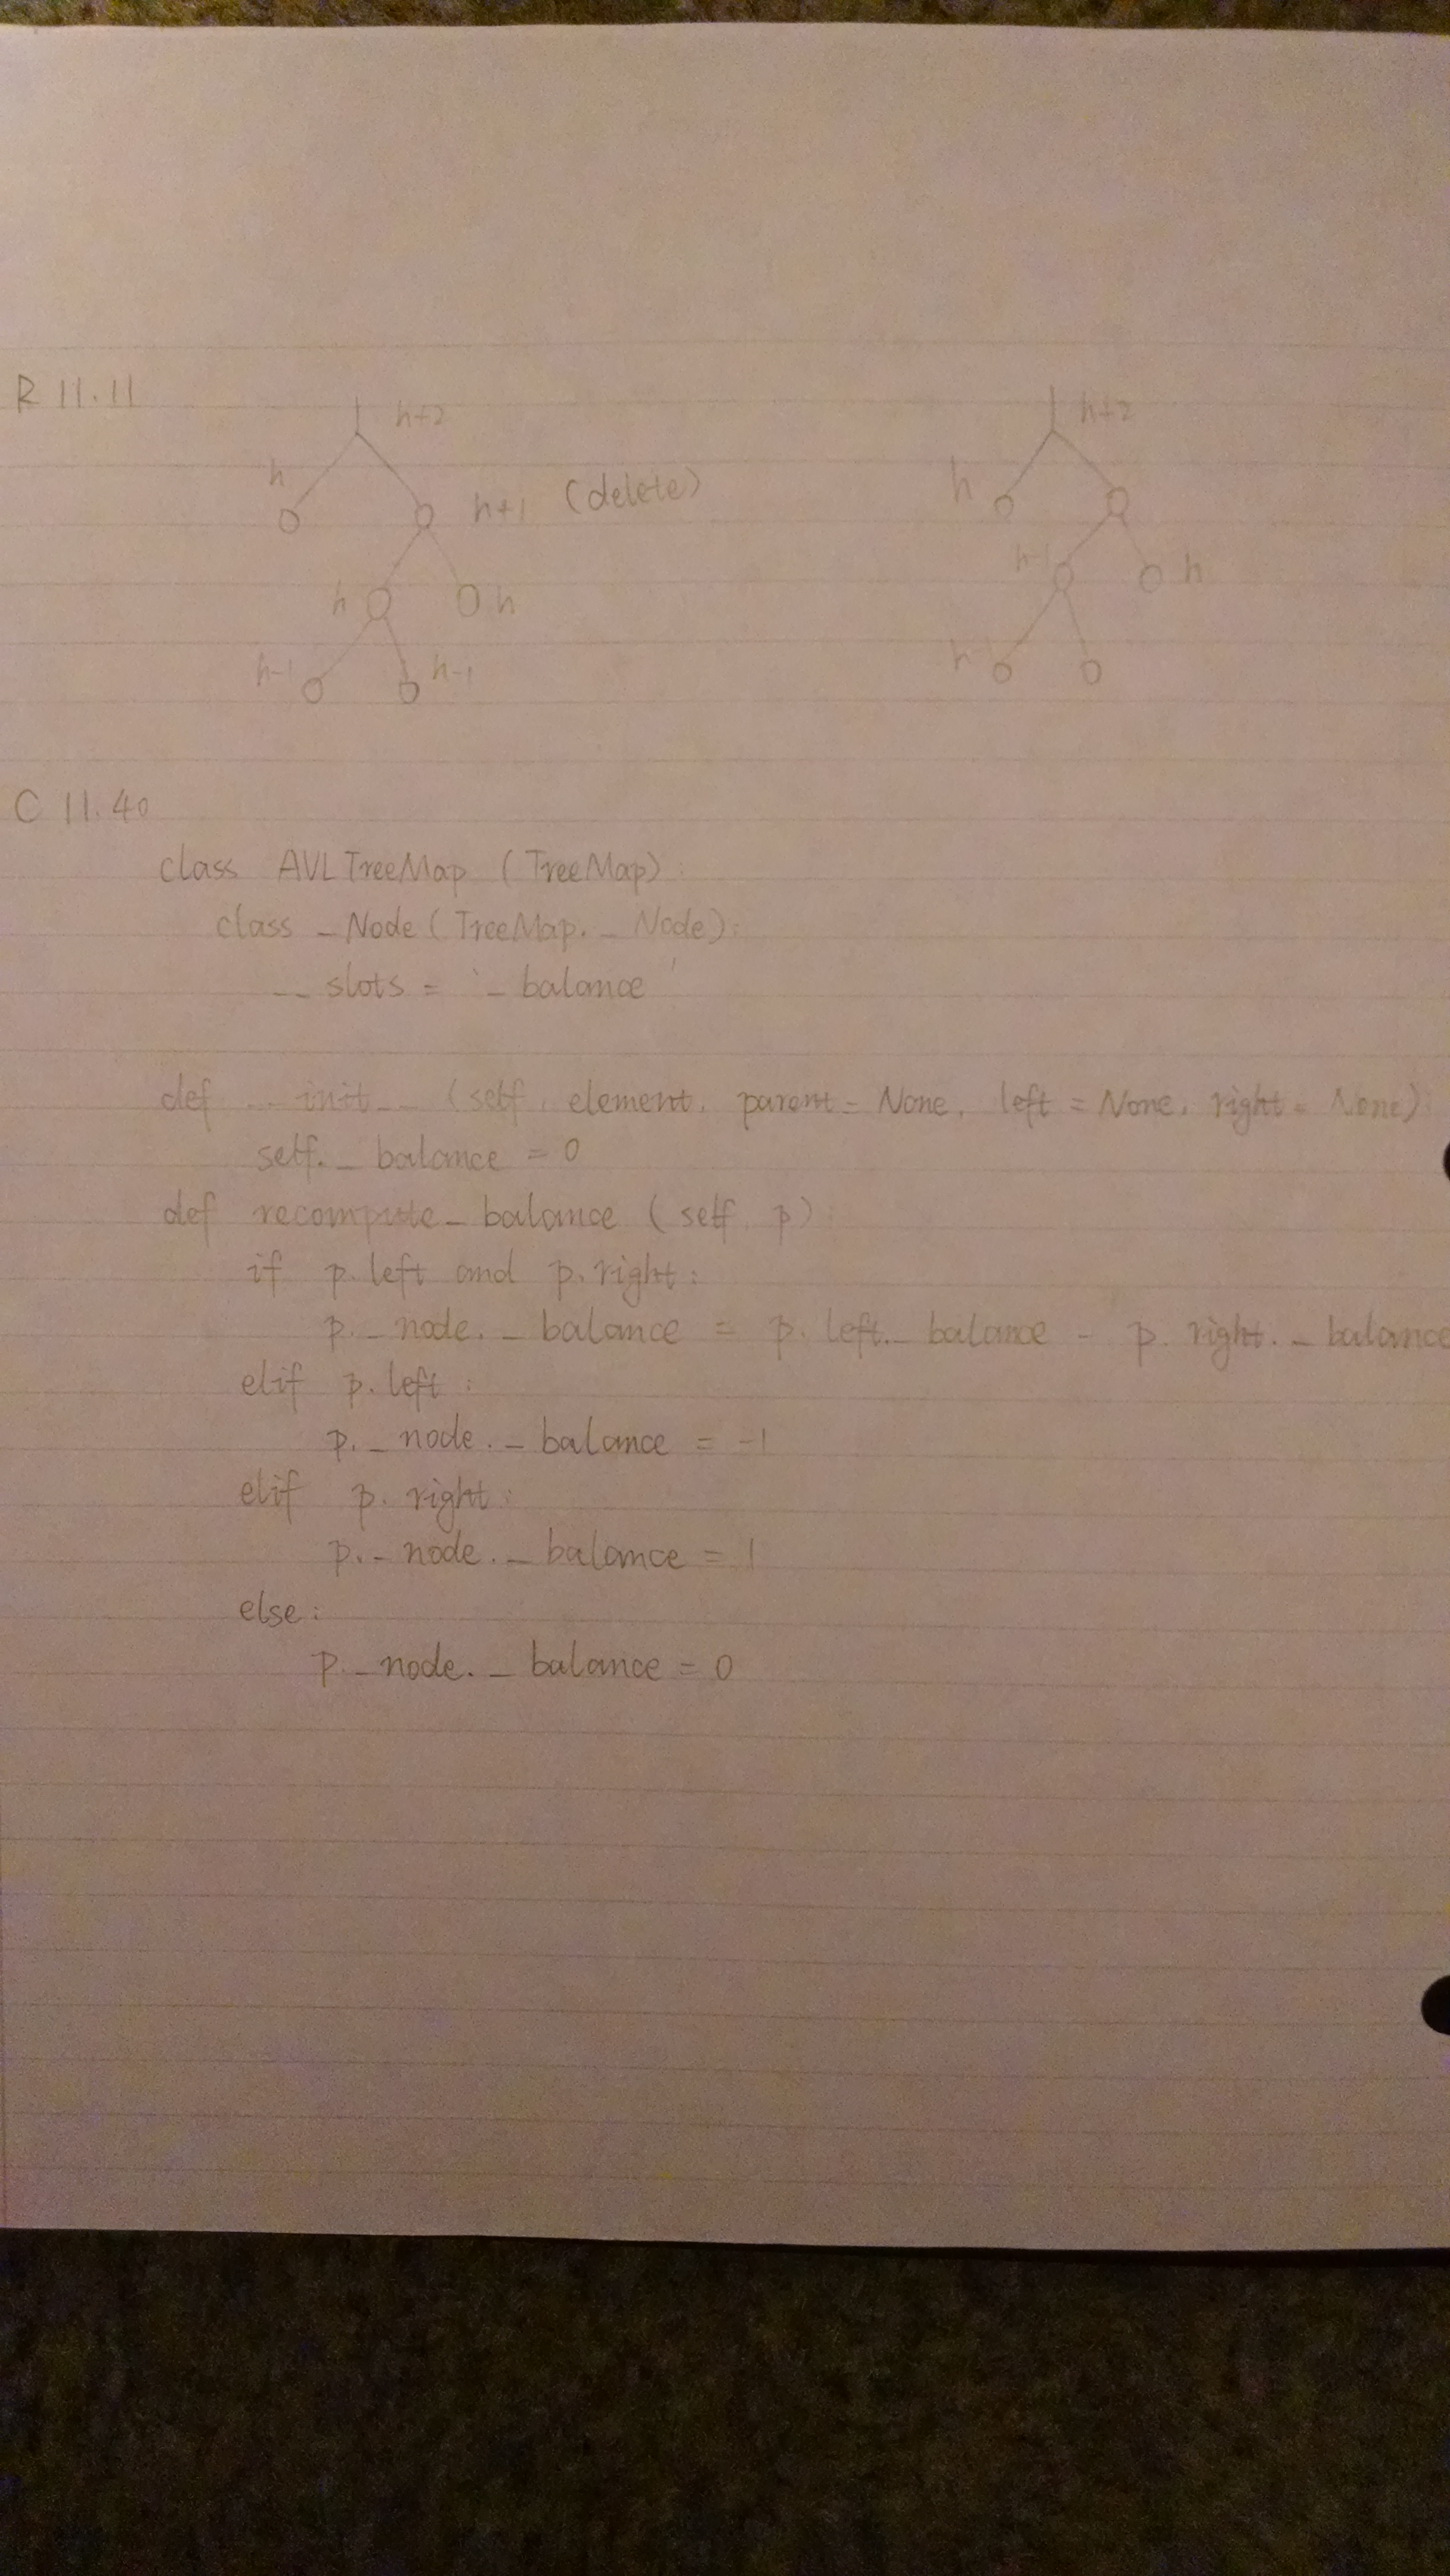 R 11.11
h+2
h+2
h
h
h+1 (delete)
h
h
h
h-1
h-1
C 11.40
class AVLTreeMap (TreeMap):
class _Node (TreeMap._Node):
__slots = '_balance'
def __init__ (self, element, parent = None, left = None, right = None):
self._balance = 0
def recompute_balance (self, p):
if p.left and p.right:
p._node._balance = p.left._balance - p.right._balance
elif p.left:
p._node._balance = -1
elif p.right:
p._node._balance = 1
else:
p._node._balance = 0